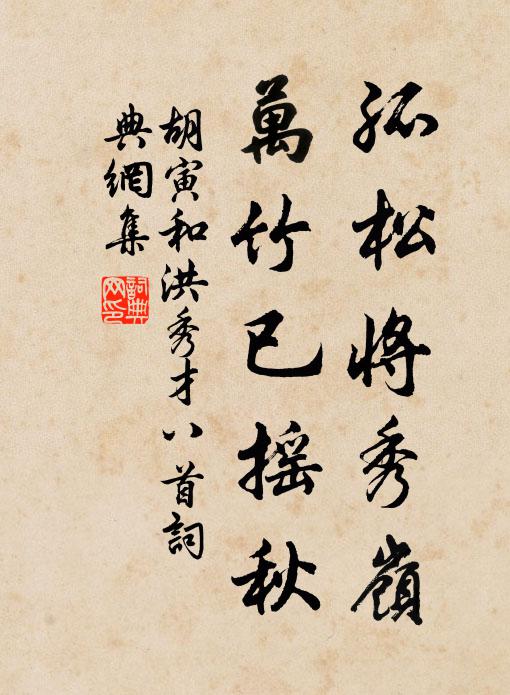 孤松將秀嶺
萬竹已摇秋
胡寅和洪秀才八首詞
典網集
詞典
网印